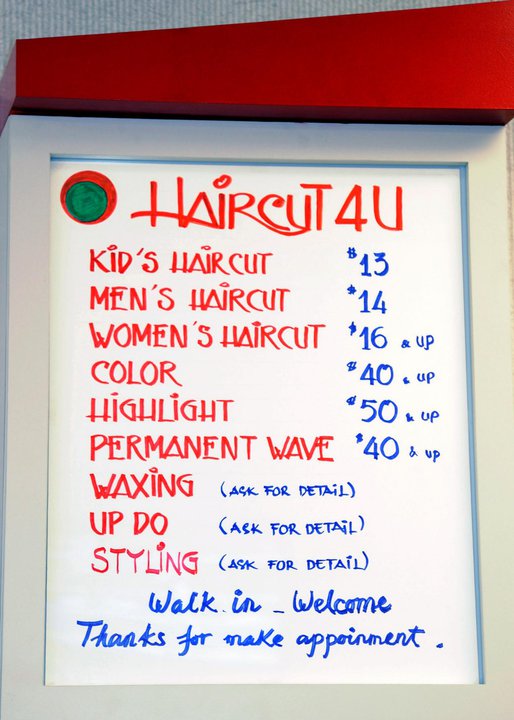 HAIRCUT 4 U
KID'S HAIRCUT $13
MEN'S HAIRCUT $14
WOMEN'S HAIRCUT $16 & UP
COLOR $40 & UP
HIGHLIGHT $50 & UP
PERMANENT WAVE $40 & up
WAXING (ASK FOR DETAIL)
UP DO (ASK FOR DETAIL)
STYLING (ASK FOR DETAIL)
Walk in - Welcome
Thanks for make appoinment .